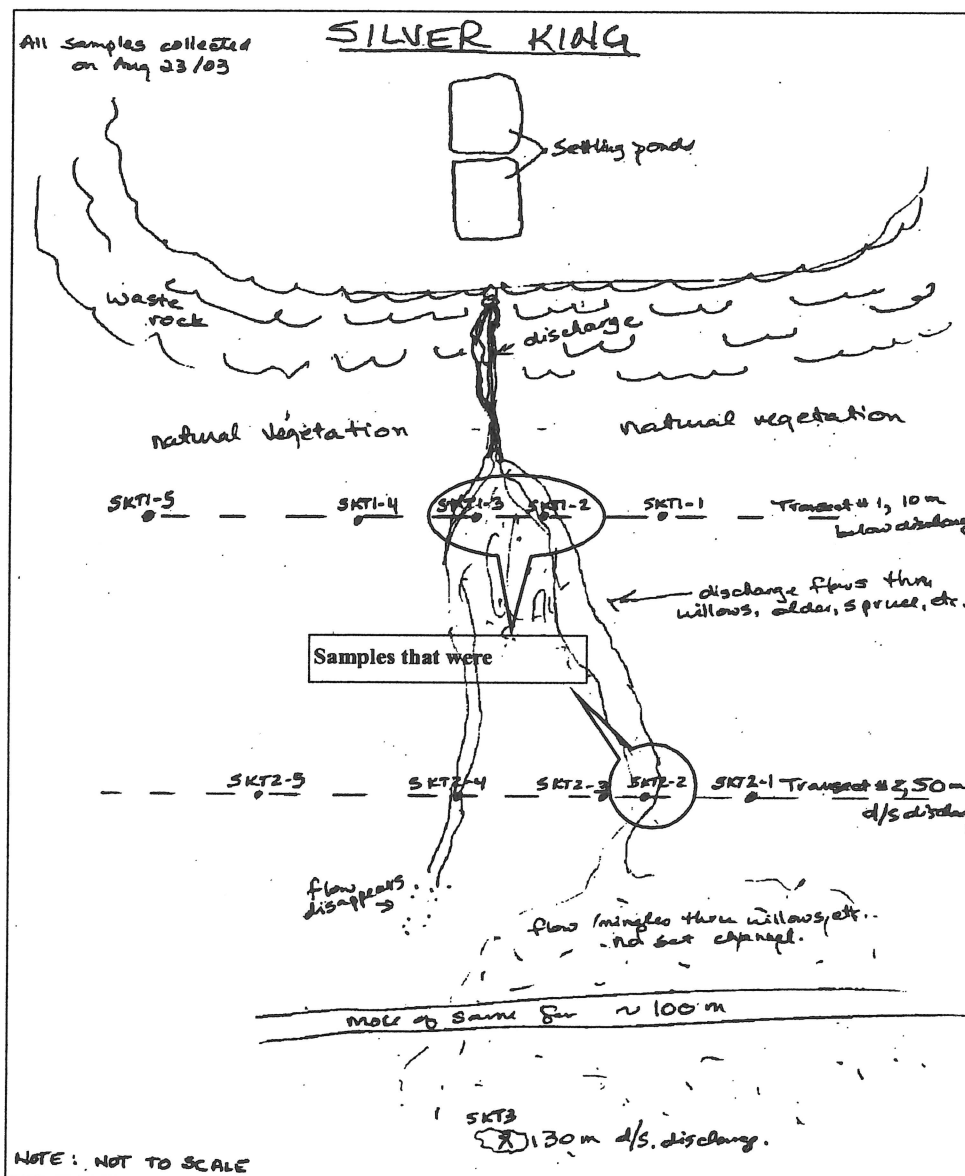 SILVER KING
All samples collected
on Aug 23/03
settling ponds
waste
rock
discharge
natural vegetation
natural vegetation
SKT1-5
SKT1-4
SKT1-3
SKT1-2
SKT1-1
Transect #1, 10 m
below discharg
discharge flows thru
willows, alder, spruce, etc.
Samples that were
SKT2-5
SKT2-4
SKT2-3
SKT2-2
SKT2-1
Transect #2, 50 m
d/s dischar
flow appears
disappears
flow mingles thru willows, etc..
no set channel.
more of same for ~ 100 m
SKT3
130 m d/s. discharge.
NOTE: NOT TO SCALE